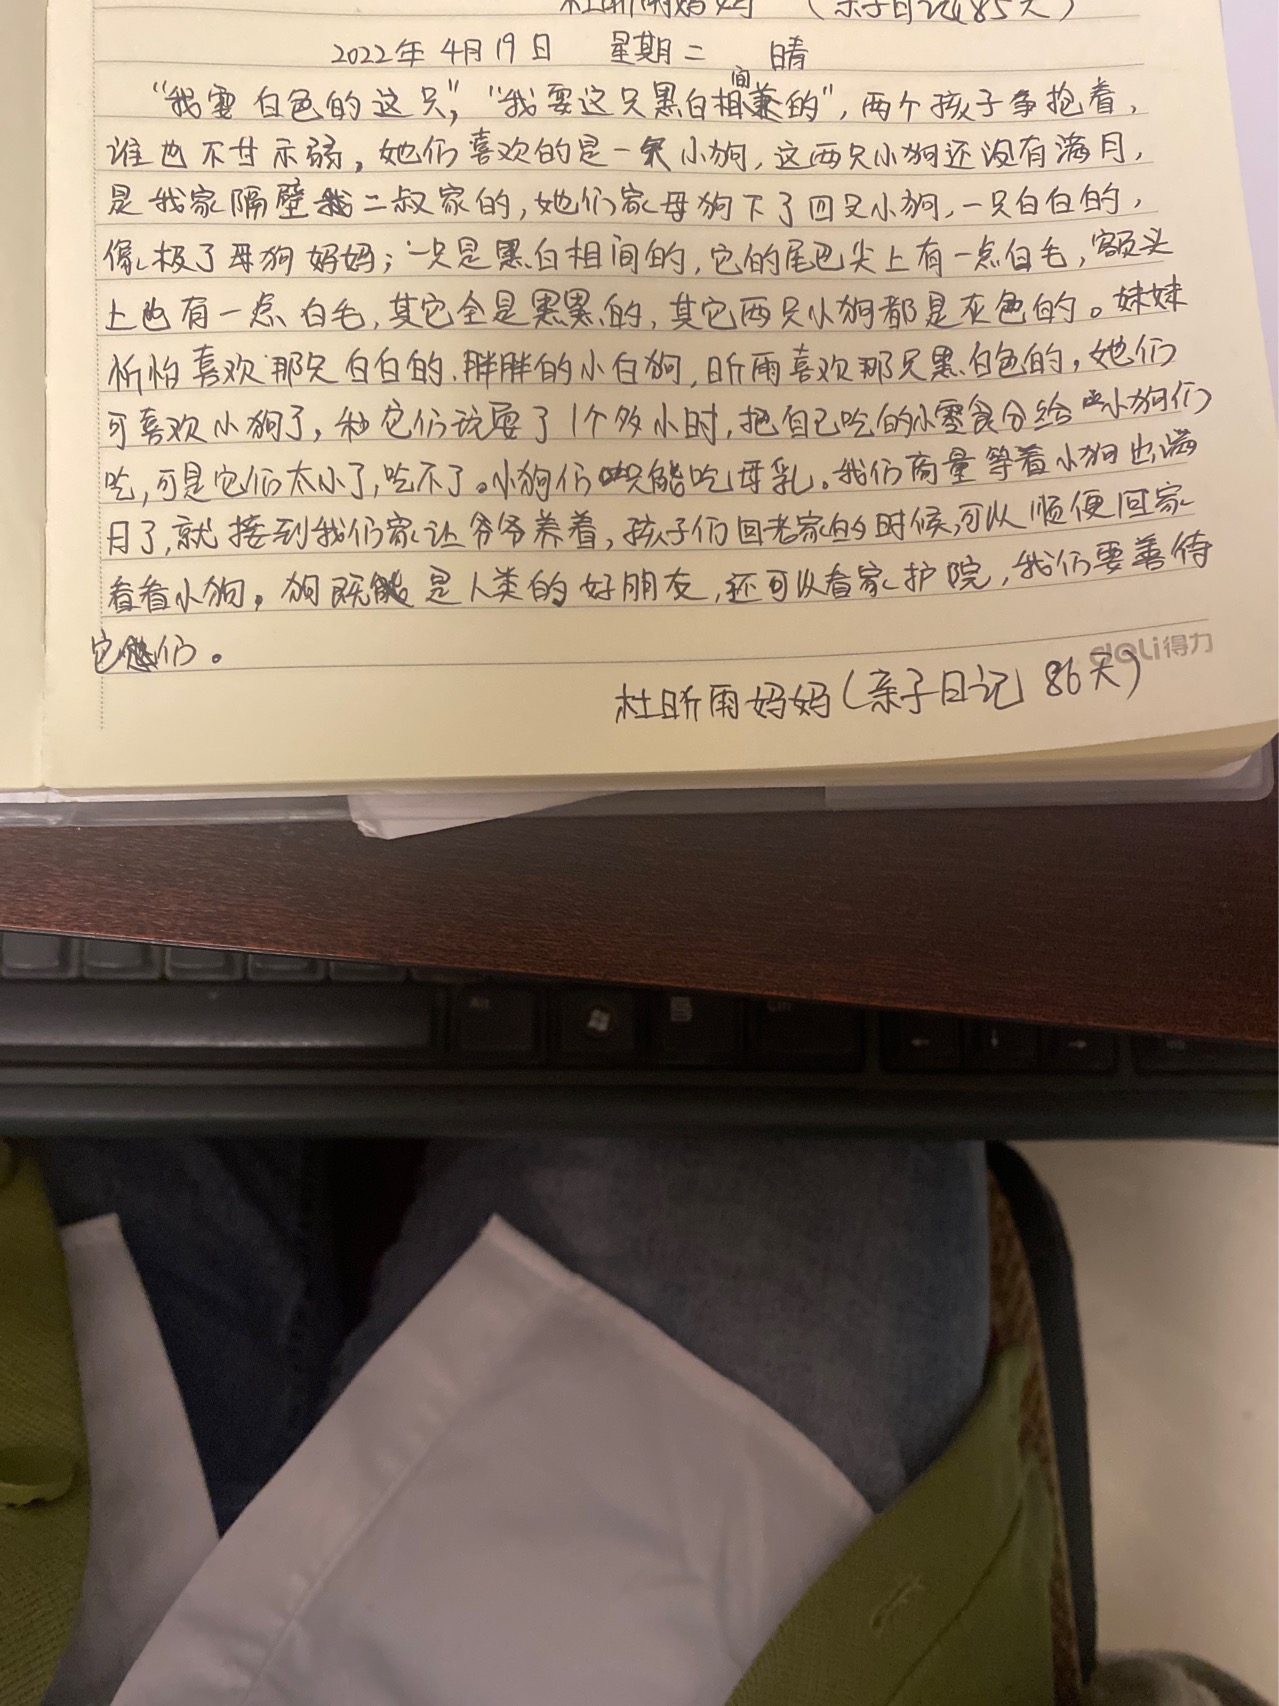 杜昕雨妈妈 (亲子日记85天)
2022年4月19日 星期二 晴
“我要白色的这只”,“我要这只黑白相间的”,两个孩子争抱着,
谁也不甘示弱。她们喜欢的是一只小狗,这两只小狗还没有满月,
是我家隔壁我二叔家的,她们家母狗下了四只小狗,一只白白的,
像极了母狗妈妈;一只是黑白相间的,它的尾巴尖上有一点白毛,额头
上也有一点白毛,其它全是黑黑的,其它两只小狗都是灰色的。妹妹
忻怡喜欢那只白白的、胖胖的小白狗,昕雨喜欢那只黑白色的,她们
可喜欢小狗了,和它们玩耍了1个多小时,把自己吃的小零食分给小狗们
吃,可是它们太小了,吃不了。小狗们只能吃母乳。我们商量等着小狗也满
月了,就接到我们家让爷爷养着,孩子们回老家的时候,可以顺便回家
看看小狗。狗既是人类的好朋友,还可以看家护院,我们要善待
它们。
deli得力
杜昕雨妈妈(亲子日记 86天)
Alt